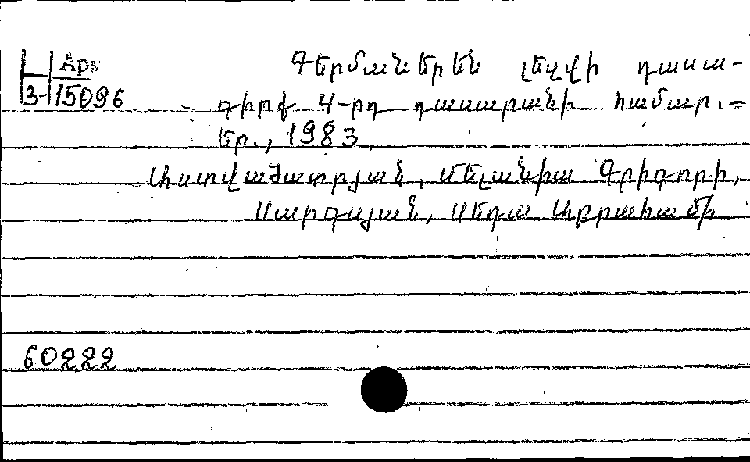 Արև
3-15096
Գերմաներեն լեզվի դասա-
գիրք 4-րդ դասարանի համար.=
Եր., 1983
Աստվածատրյան, Մելանիա Գրիգորի,
Սարգսյան, Սեդա Աբրահամի
60222